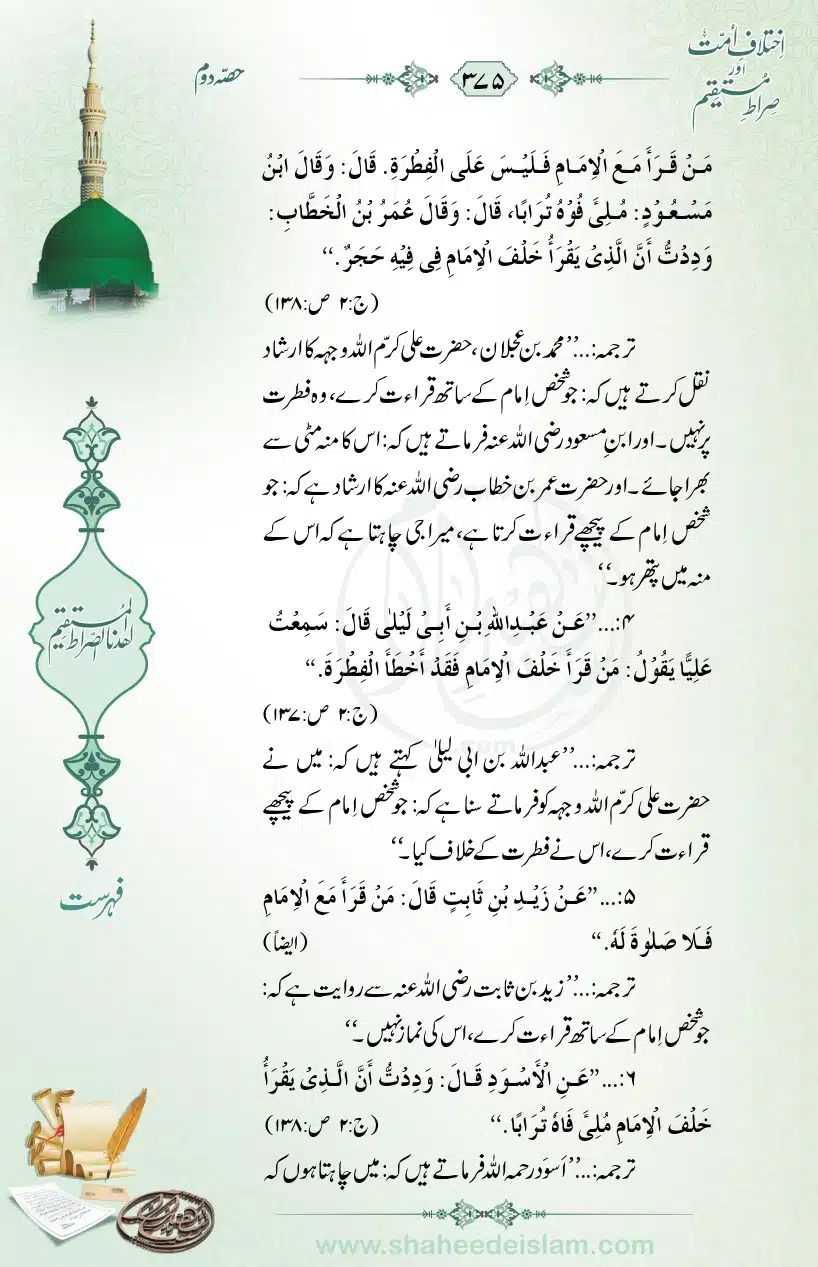 اِختلافِ اُمّت
اور
صِراطِ مُستقیم
۳۷۵
حصّہ دوم
مَنْ قَرَأَ مَعَ الْاِمَامِ فَلَيْسَ عَلَى الْفِطْرَةِ. قَالَ: وَقَالَ ابْنُ
مَسْعُوْدٍ: مُلِئَ فُوْهُ تُرَابًا، قَالَ: وَقَالَ عُمَرُ بْنُ الْخَطَّابِ:
وَدِدْتُّ أَنَّ الَّذِیْ يَقْرَأُ خَلْفَ الْاِمَامِ فِی فِيْهِ حَجَرٌ.‘‘
(ج:۲ ص:۱۳۸)
ترجمہ:...’’محمد بن عجلان، حضرت علی کرّم اللہ وجہہ کا ارشاد
نقل کرتے ہیں کہ: جو شخص اِمام کے ساتھ قراءت کرے، وہ فطرت
پر نہیں۔ اور ابنِ مسعود رضی اللہ عنہ فرماتے ہیں کہ: اس کا منہ مٹی سے
بھرا جائے۔ اور حضرت عمر بن خطاب رضی اللہ عنہ کا ارشاد ہے کہ: جو
شخص اِمام کے پیچھے قراءت کرتا ہے، میرا جی چاہتا ہے کہ اس کے
منہ میں پتھر ہو۔‘‘
۴:...’’عَنْ عَبْدِاللهِ بْنِ أَبِیْ لَيْلٰی قَالَ: سَمِعْتُ
عَلِيًّا يَقُوْلُ: مَنْ قَرَأَ خَلْفَ الْاِمَامِ فَقَدْ أَخْطَأَ الْفِطْرَةَ.‘‘
(ج:۲ ص:۱۳۷)
ترجمہ:...’’عبداللہ بن ابی لیلیٰ کہتے ہیں کہ: میں نے
حضرت علی کرّم اللہ وجہہ کو فرماتے سنا ہے کہ: جو شخص اِمام کے پیچھے
قراءت کرے، اس نے فطرت کے خلاف کیا۔‘‘
۵:...’’عَنْ زَيْدِ بْنِ ثَابِتٍ قَالَ: مَنْ قَرَأَ مَعَ الْاِمَامِ
فَلَا صَلٰوةَ لَهٗ.‘‘ (ایضاً)
ترجمہ:...’’زید بن ثابت رضی اللہ عنہ سے روایت ہے کہ:
جو شخص اِمام کے ساتھ قراءت کرے، اس کی نماز نہیں۔‘‘
۶:...’’عَنِ الْأَسْوَدِ قَالَ: وَدِدْتُّ أَنَّ الَّذِیْ يَقْرَأُ
خَلْفَ الْاِمَامِ مُلِئَ فَاهُ تُرَابًا.‘‘ (ج:۲ ص:۱۳۸)
ترجمہ:...’’اَسوَد رحمہ اللہ فرماتے ہیں کہ: میں چاہتا ہوں کہ
اهدنا الصراط المستقیم
فہرست
www.shaheedeislam.com